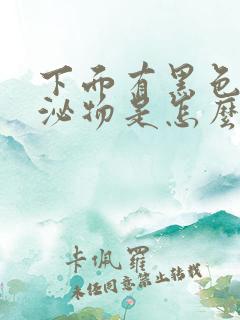 下面有黑色
泌物是怎麼
卡佩羅
未经同意禁止转载